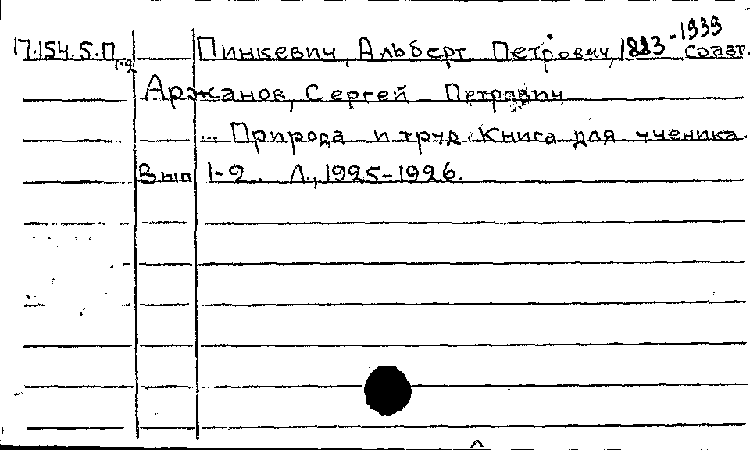 17.154.5.П 1-2 Пинкевич, Альберт Петрович, 1883-1939 соавт.
Аржанов, Сергей Петрович
... Природа и труд. Книга для ученика.
Вып 1-2. Л., 1925-1926.